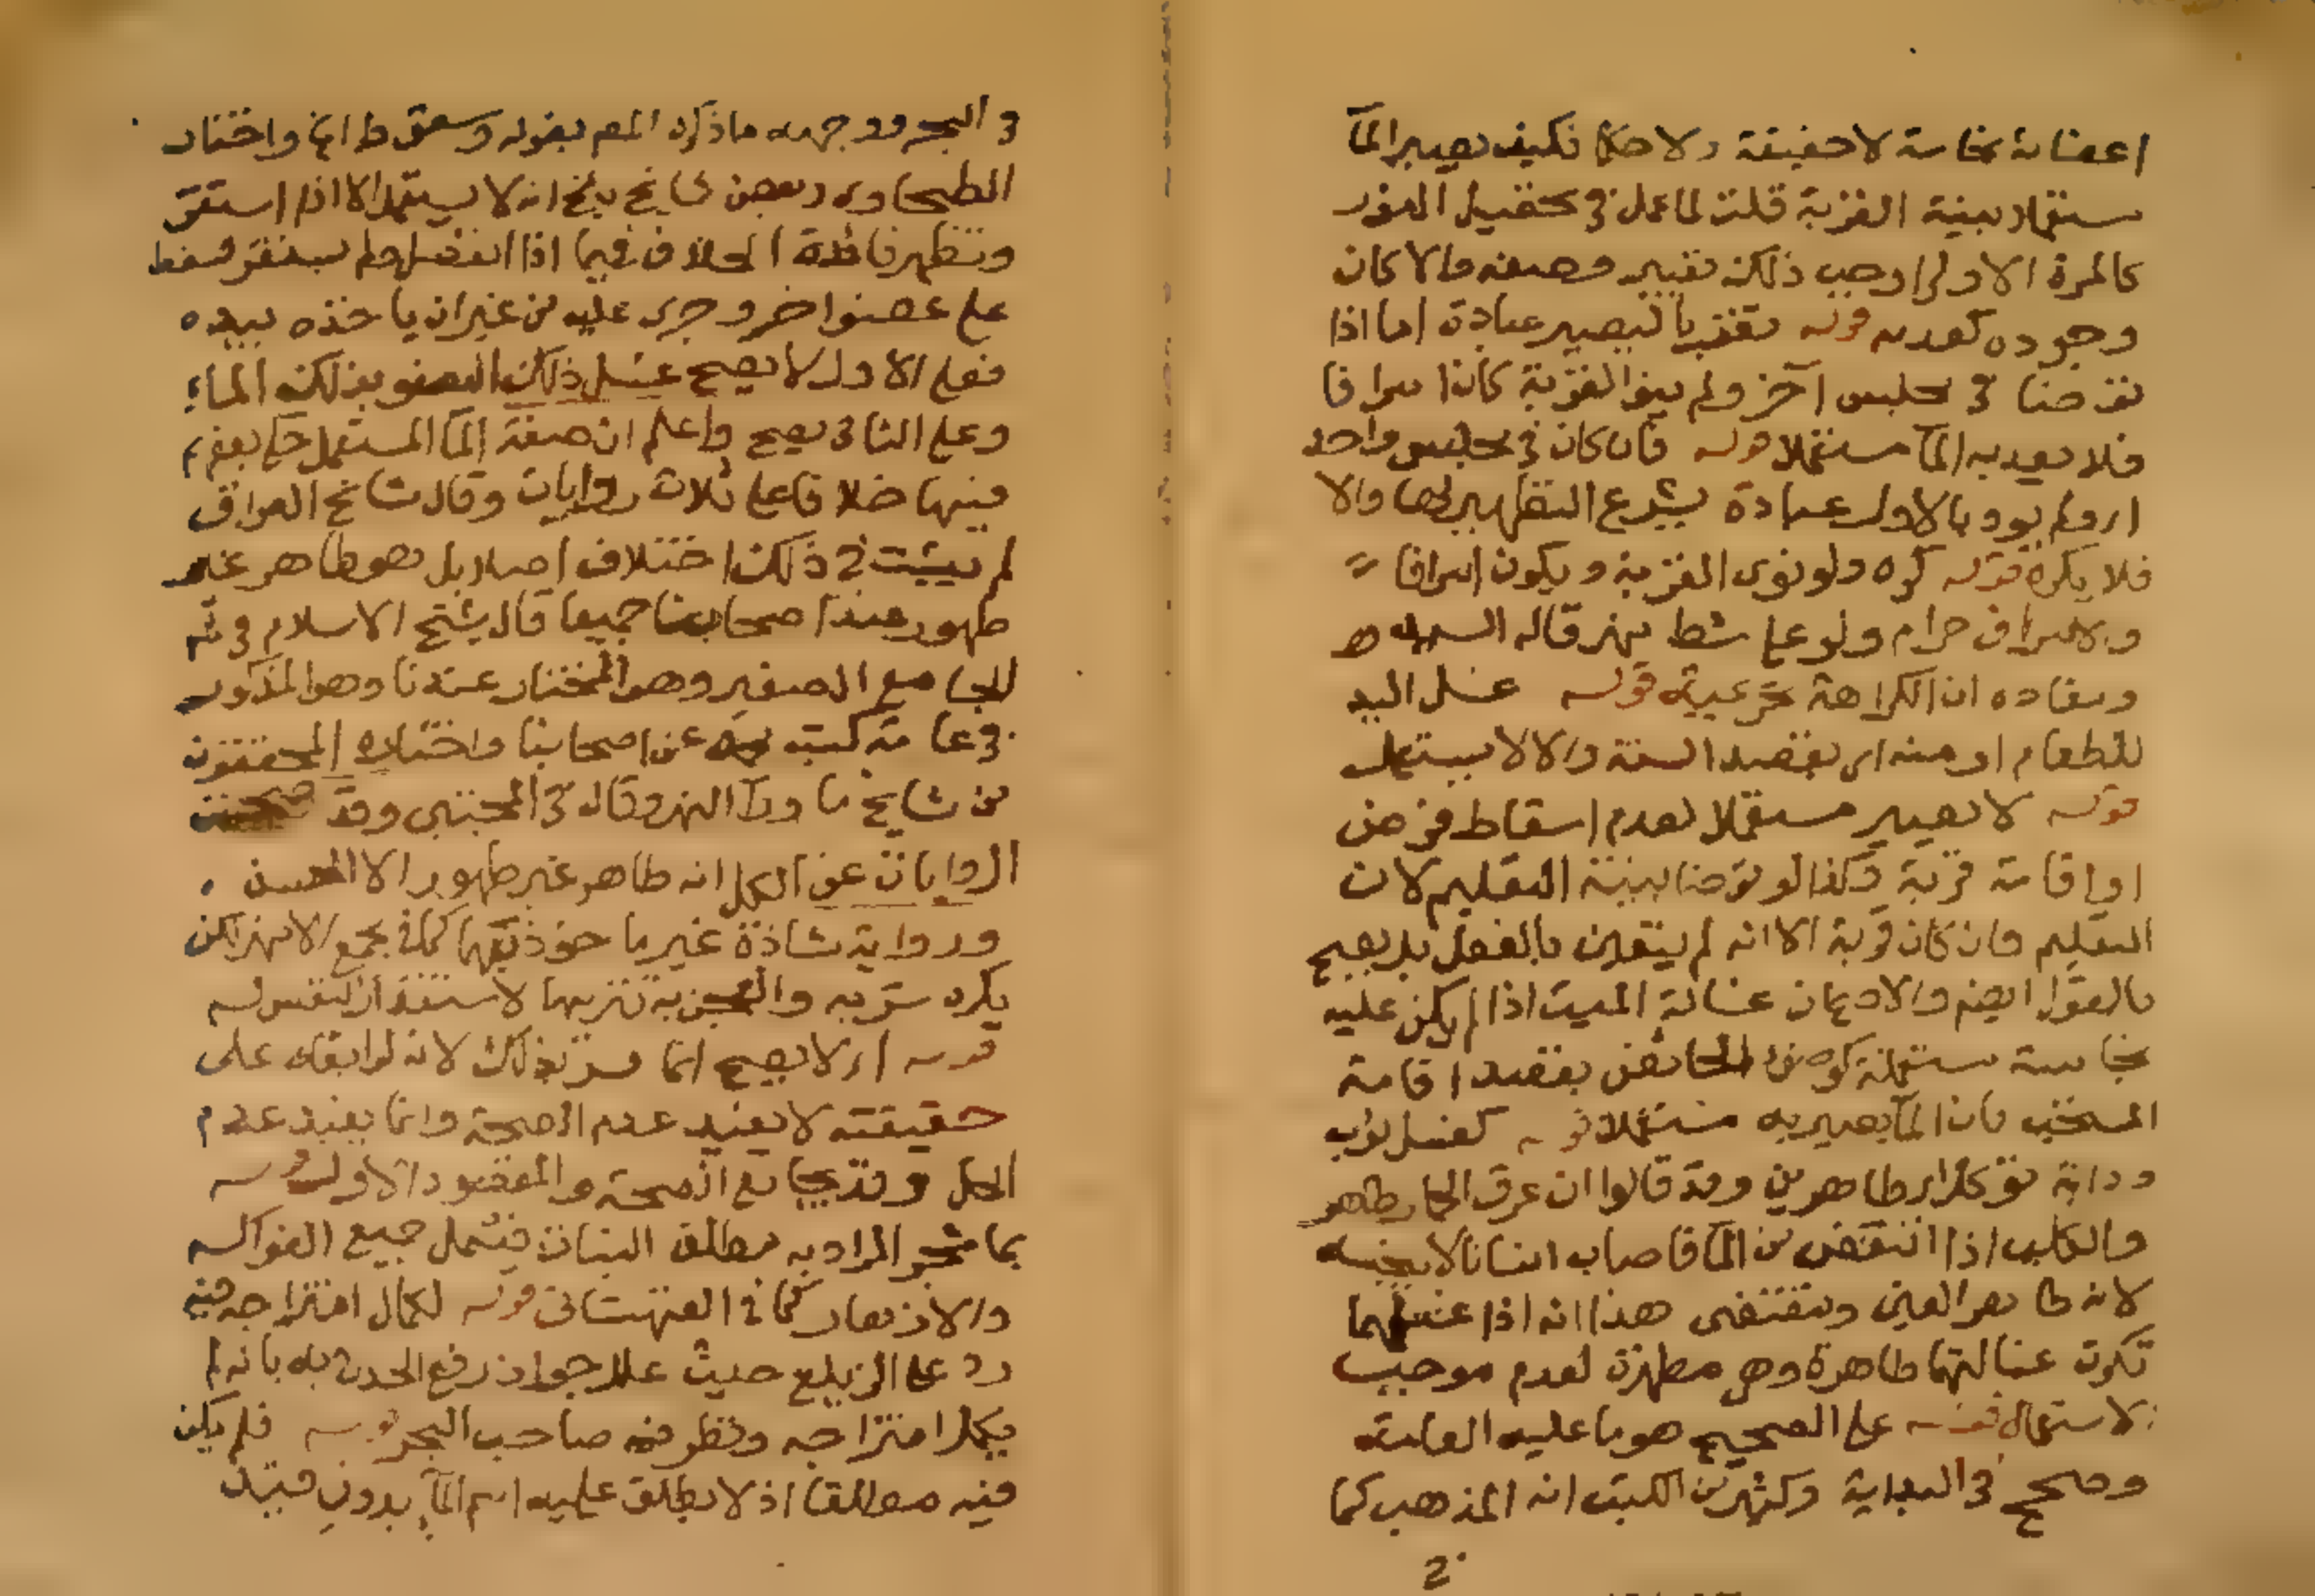 اعضائه نجاسة لا حقيقة ولا حكما فكيف يصير الماء
مستعملا بنية القربة قلت لما عمل في تحصيل النور
كالمرة الاولى اوجب ذلك تغيير وصفه والا كان
وجوده كعدمه قوله تقذر بالتصير عبادة اما اذا
توضا في مجلس آخر ولم ينو القربة كان اسرافا
فلا يصير به الماء مستعملا قوله فان كان في مجلس واحد
اي ولم يود بالاول عبادة يشرع التطهير لها والا
فلا يكره قوله كره ولو نوى القربة ويكون اسرافا
والاسراف حرام ولو على شط نهر قاله السيد اه
ومفاده ان الكراهة تحريمية قوله غسل اليد
للطعام او منه اي بقصد السنة والا لا يستعمل
قوله لا يصير مستعملا لعدم اسقاط فرض
او اقامة قربة وكذا لو توضا بنية التعليم لان
التعليم وان كان قربة الا انه لم يتعين بالفعل بل يصح
بالقول ايضا والادهان غسالة الميت اذا لم يكن عليه
نجاسة مستعملة كوضوء الحائض بقصد اقامة
المستحب فان الماء يصير به مستعملا قوله كغسل ثوب
ودابة توكل اي طاهرين وقد قالوا ان عرق الحمار طاهر
والكلب اذا انتفض من الماء فاصاب انسانا لا ينجسه
لانه طاهر العين ومقتضى هذا انه اذا غسلهما
تكون غسالتهما طاهرة وهي مطهرة لعدم موجب
الاستعمال قوله على الصحيح هو ما عليه العامة
وصحح في الهداية وكثير من الكتب انه المذهب كما
في البحر ووجهه ما ذكره المص بقوله وسقوط الخ واختار
الطحاوي وبعض مشايخ بلخ انه لا يستعمل الا اذا استقر
وتظهر فائدة الخلاف فيما اذا انفصل ولم يستقر فسقط
على عضو اخر وجرى عليه من غير ان ياخذه بيده
فعلى الاول لا يصح غسل ذلك العضو بذلك الماء
وعلى الثاني يصح واعلم ان صفة الماء المستعمل حكى بعضهم
فيها خلافا على ثلاث روايات وقال مشايخ العراق
لم يثبت في ذلك اختلاف اصلا بل هو طاهر غير
طهور عند اصحابنا جميعا قال شيخ الاسلام في شرح
الجامع الصغير وهو المختار عندنا وهو المذكور
في عامة كتب محمد عن اصحابنا واختاره المحققون
من مشايخ ما وراء النهر وقال في المجتبى وقد صحت
الروايات عن الكل انه طاهر غير طهور الا الحسن
وروايته شاذة غير ماخوذ بها كما في مجمع الانهر لكن
يكره شربه والعجن به تنزيها لاستقذار النفس له
قوله اي لا يصح انما فسر بذلك لانه لو ابقاه على
حقيقته لا يفيد عدم الصحة وانما يفيد عدم
الحل وقد يجامع الصحة والمقصود الاول قوله
بما شجر المراد به مطلق النبات فيشمل جميع الفواكه
والازهار كما في القهستاني قوله لكمال امتزاجه فيه
رد على الزيلعي حيث علل جواز رفع الحدث به بانه لم
يكمل امتزاجه ونظر فيه صاحب البحر قوله فلم يكن
فيه مطلقا اذ لا يطلق عليه اسم الماء بدون قيد